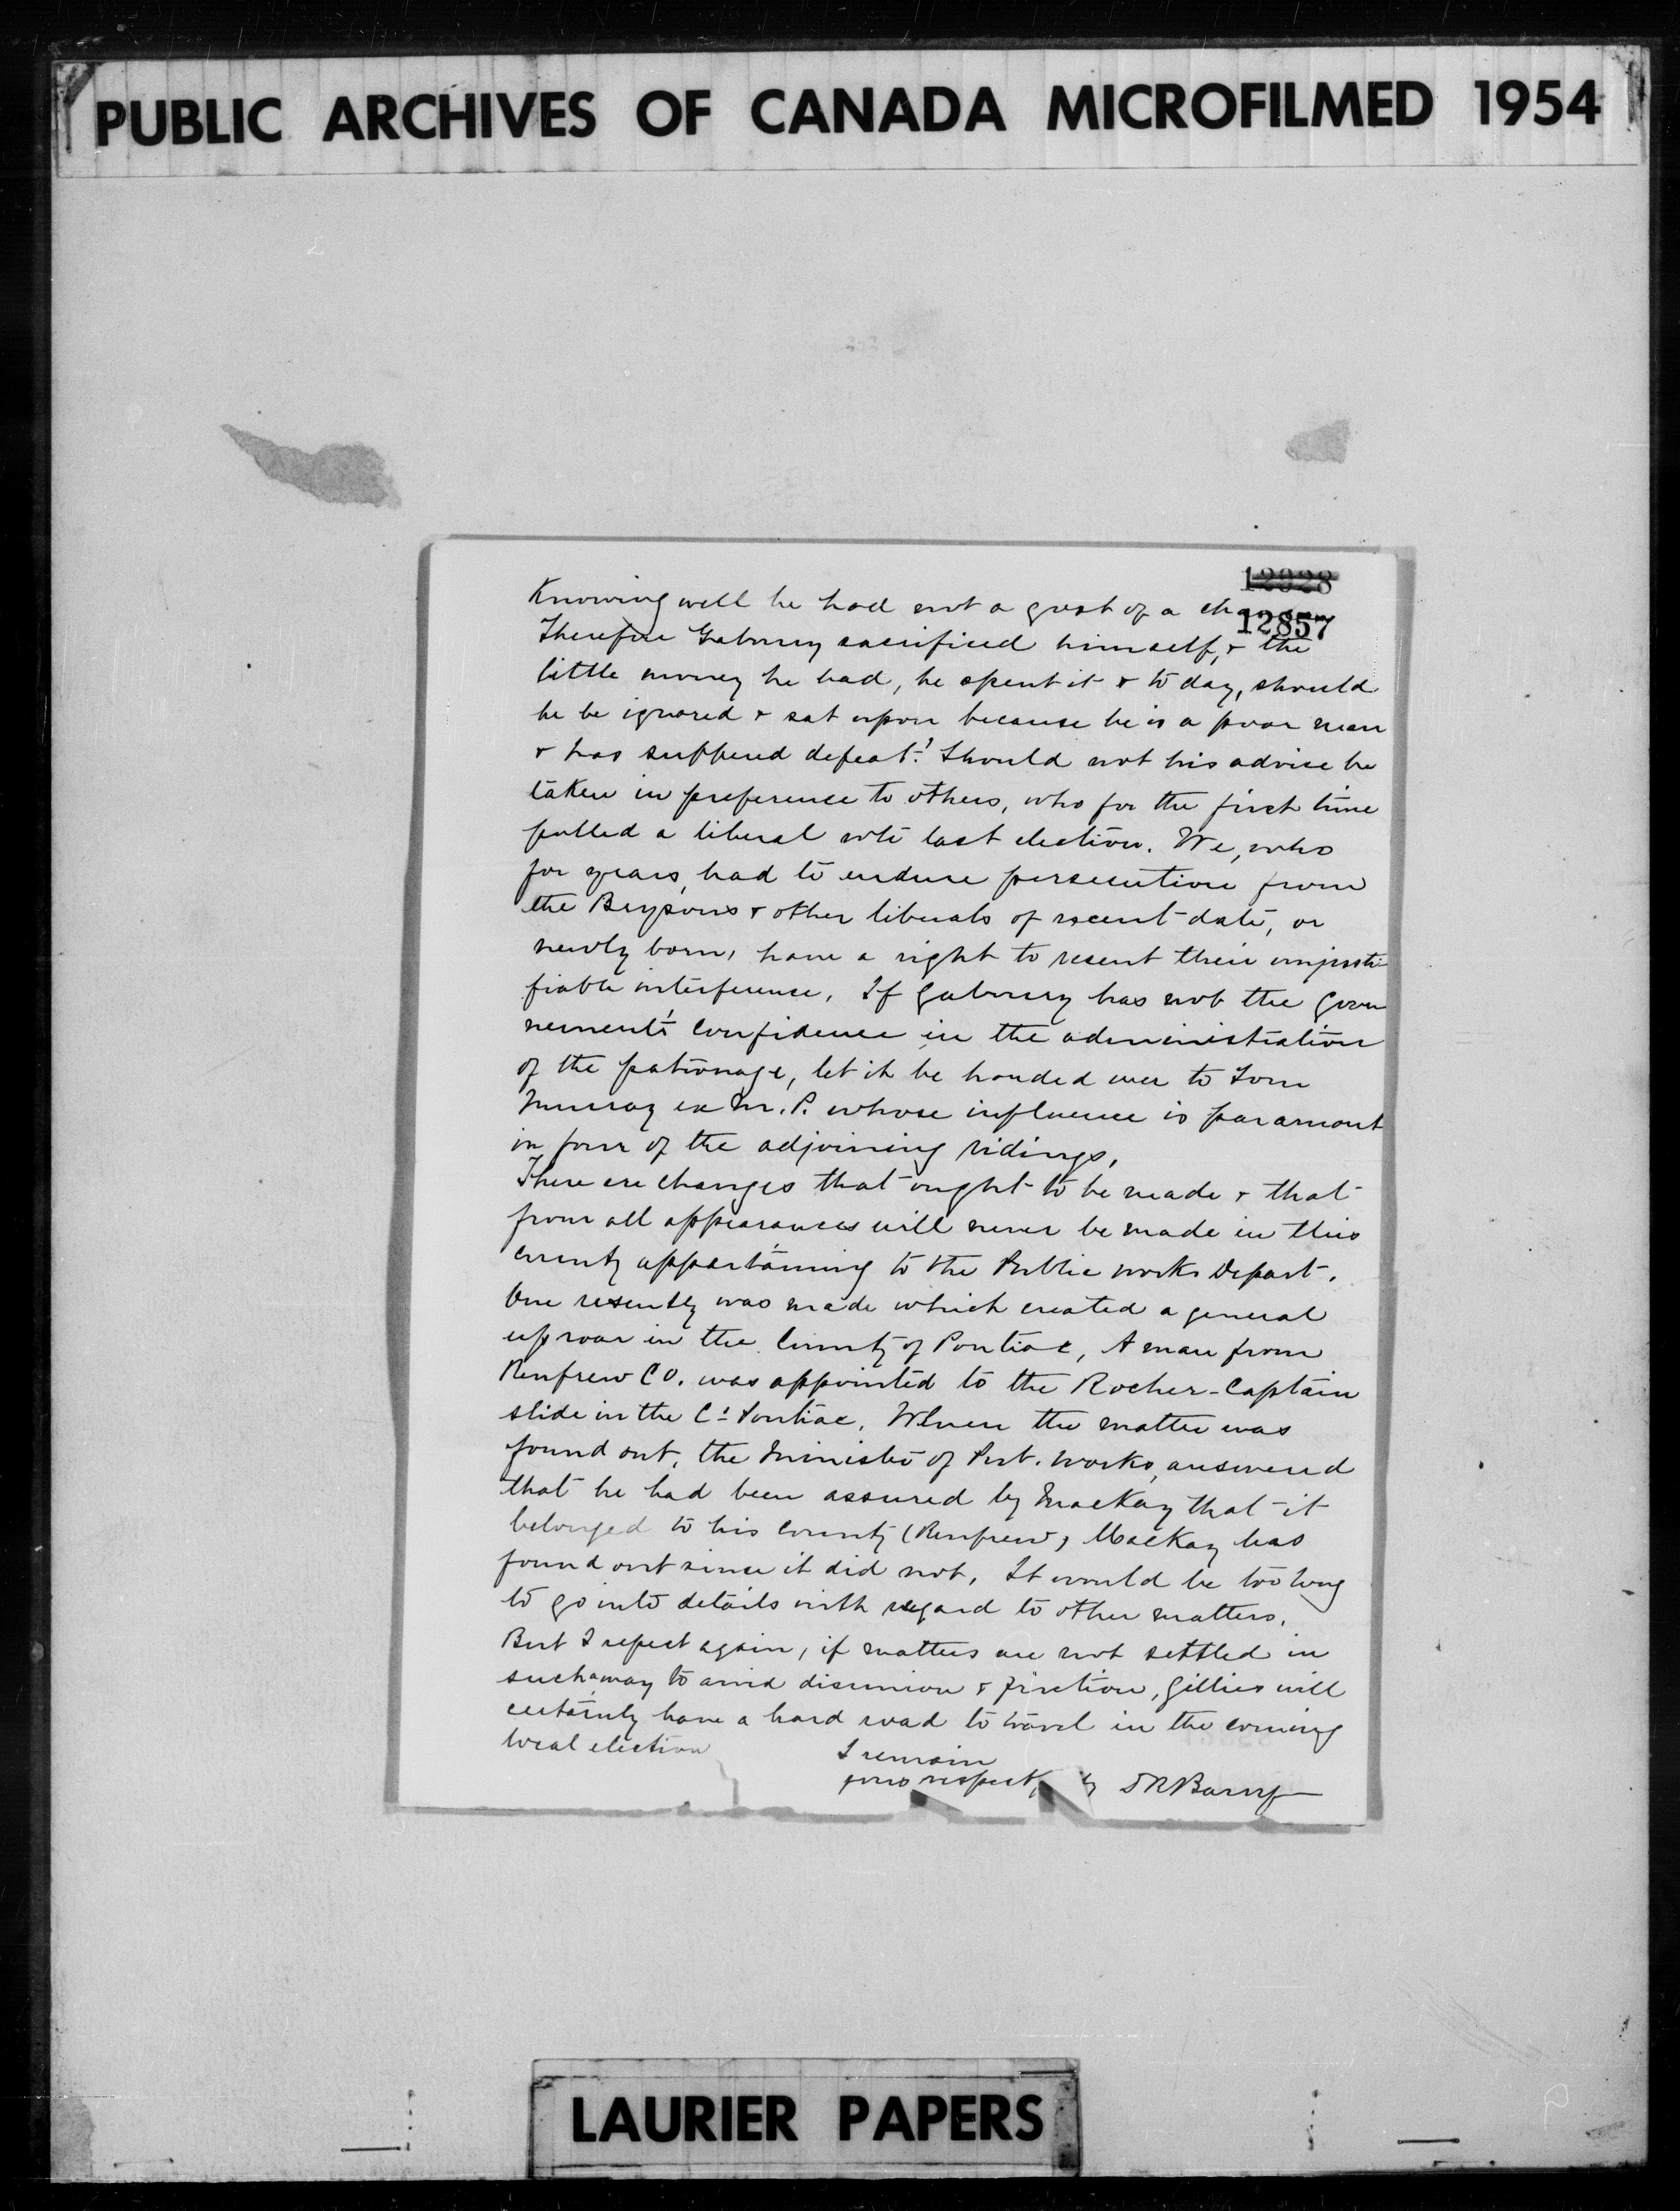 PUBLIC ARCHIVES OF CANADA MICROFILMED 1954
12928
12857
Knowing well he had not a gost of a
Therefore Gaboury sacrificed himself, & the
little money he had, he spent it & to day, should
he be ignored & sat upon because he is a poor man
& has suffered defeat? Should not his advice be
taken in preference to others, who for the first time
polled a liberal vote last election. We, who
for years, had to endure persecution from
the Brysons & other liberals of recent date, or
newly born, have a right to resent their unjusti-
fiable interference. If Gaboury has not the gover
nement's confidence in the administration
of the patronage, let it be handed over to Tom
Murray ex M.P. whose influence is paramont
in four of the adjoining ridings.
There are changes that ought to be made & that
from all appearances will never be made in this
county appertaining to the Public works Depart.
One resently was made which created a general
uproar in the County of Pontiac, A man from
Renfrew CO. was appointed to the Rocher-Captain
slide in the Ct Pontiac. When the matter was
found out, the Minister of Pub. Works, answered
that he had been assured by MacKay that it
belonged to his County (Renfrew) MacKay has
found out since it did not. It would be too long
to go into details with regard to other matters.
But I repeat again, if matters are not settled in
such a way to avoid disunion & friction, Gillies will
certainly have a hard road to travel in the coming
local election
I remain
yours respect ly
LAURIER PAPERS